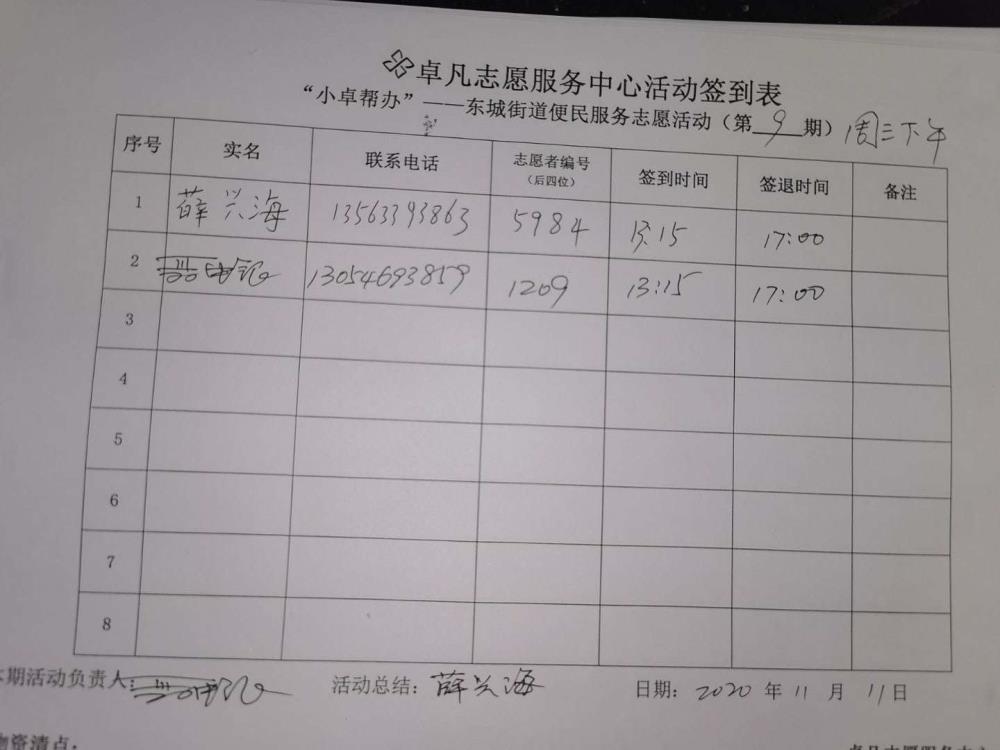 卓凡志愿服务中心活动签到表
“小卓帮办”——东城街道便民服务志愿活动（第9期）周三下午
序号 实名 联系电话 志愿者编号（后四位） 签到时间 签退时间 备注
1 薛兴海 13563393863 5984 13:15 17:00
2 13054693859 1209 13:15 17:00
3
4
5
6
7
8
本期活动负责人： 活动总结：薛兴海 日期：2020年11月11日
物资清点：